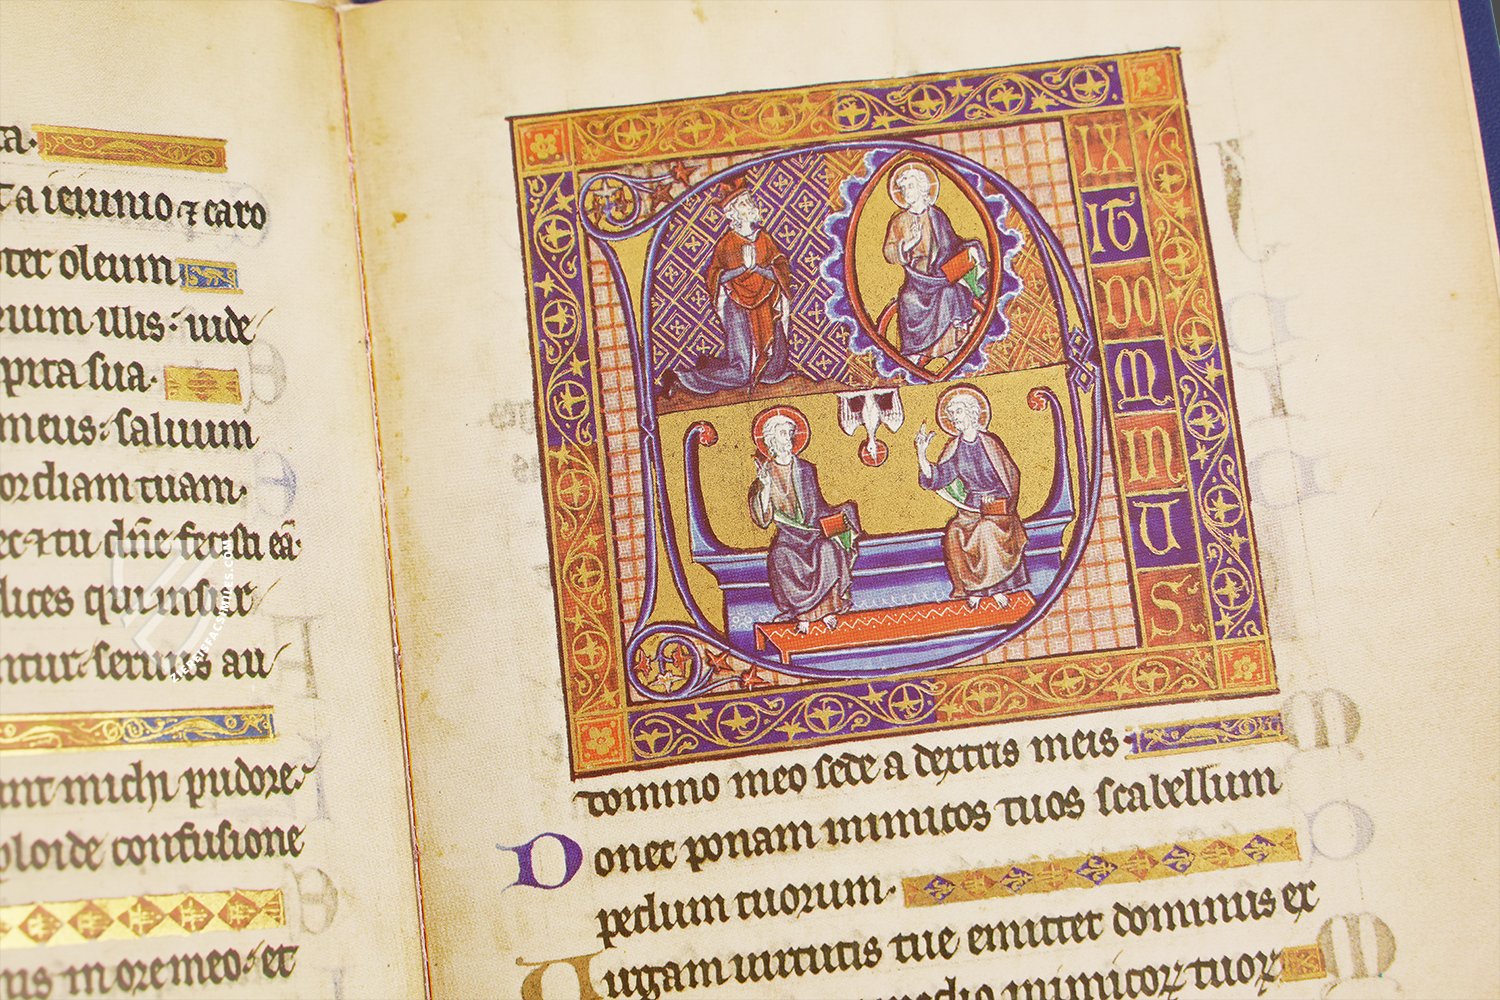 ta·
ta ieiunio ⁊ caro
ter oleum
rium illis: uide
pita sua·
meus: saluum
ordiam tuam·
ec ⁊ tu dñe fecisti eã·
dices qui insur
ntur: seruus au
ant michi pudore:
ploide confusione
nis in ore meo: et
D
IX
IT
DO
M
IN
U
S
domino meo sede a dextris meis·
Donec ponam inimicos tuos scabellum
pedum tuorum·
Uirgam uirtutis tue emittet dominus ex
medio inimicoꝝ tuoꝝ